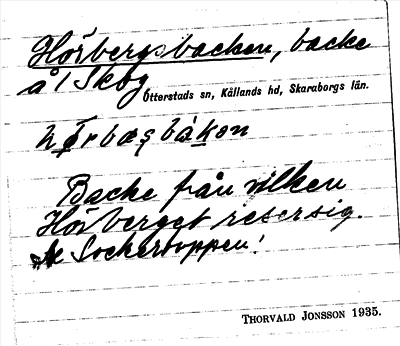 Hörbergsbacken, backe
å / Skog
Otterstads sn, Kållands hd, Skaraborgs län.
Backe från vilken
Hörberget reser sig.
Se Sockertoppen!
THORVALD JONSSON 1935.